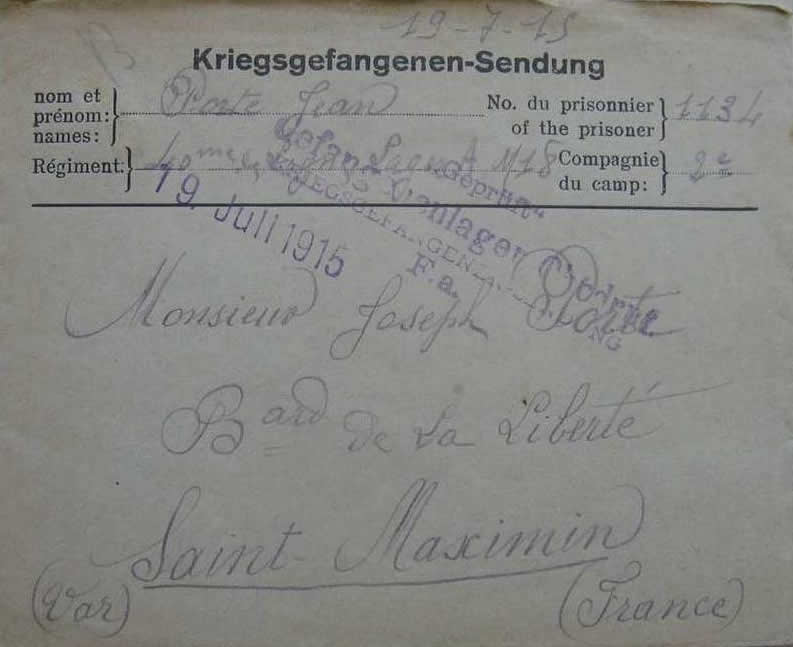 19-7-15
Kriegsgefangenen-Sendung
nom et prénom: names: Porte Jean No. du prisonnier of the prisoner 1134
Régiment: 40me de Ligne M18 Compagnie du camp: 2e
"Geprüft"
19. Juli 1915
F.a.
Monsieur Joseph Porte
Bard de La Liberté
Saint-Maximin
(Var) (France)